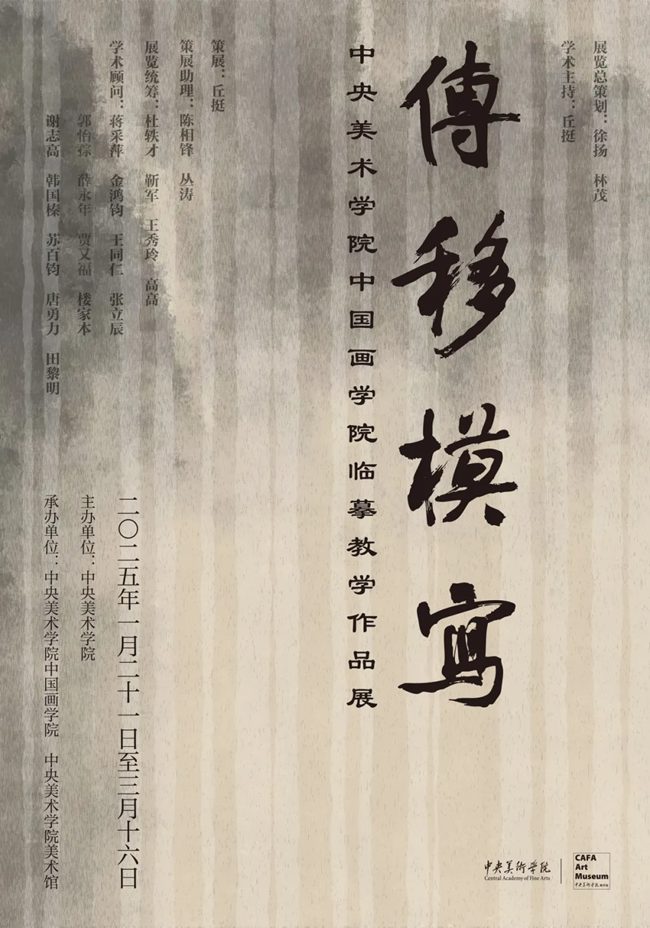 展览总策划：徐扬 林茂
学术主持：丘挺
傳移模寫
中央美术学院中国画学院临摹教学作品展
策展：丘挺
策展助理：陈相锋 丛涛
展览统筹：杜轶才 靳军 王秀玲 高高
学术顾问：蒋采萍 金鸿钧 王同仁 张立辰
郭怡孮 薛永年 贾又福 楼家本
谢志高 韩国榛 苏百钧 唐勇力 田黎明
二〇二五年一月二十一日至三月十六日
主办单位：中央美术学院
承办单位：中央美术学院中国画学院 中央美术学院美术馆
中央美術学院
Central Academy of Fine Arts
CAFA
Art
Museum
中央美術学院美術館